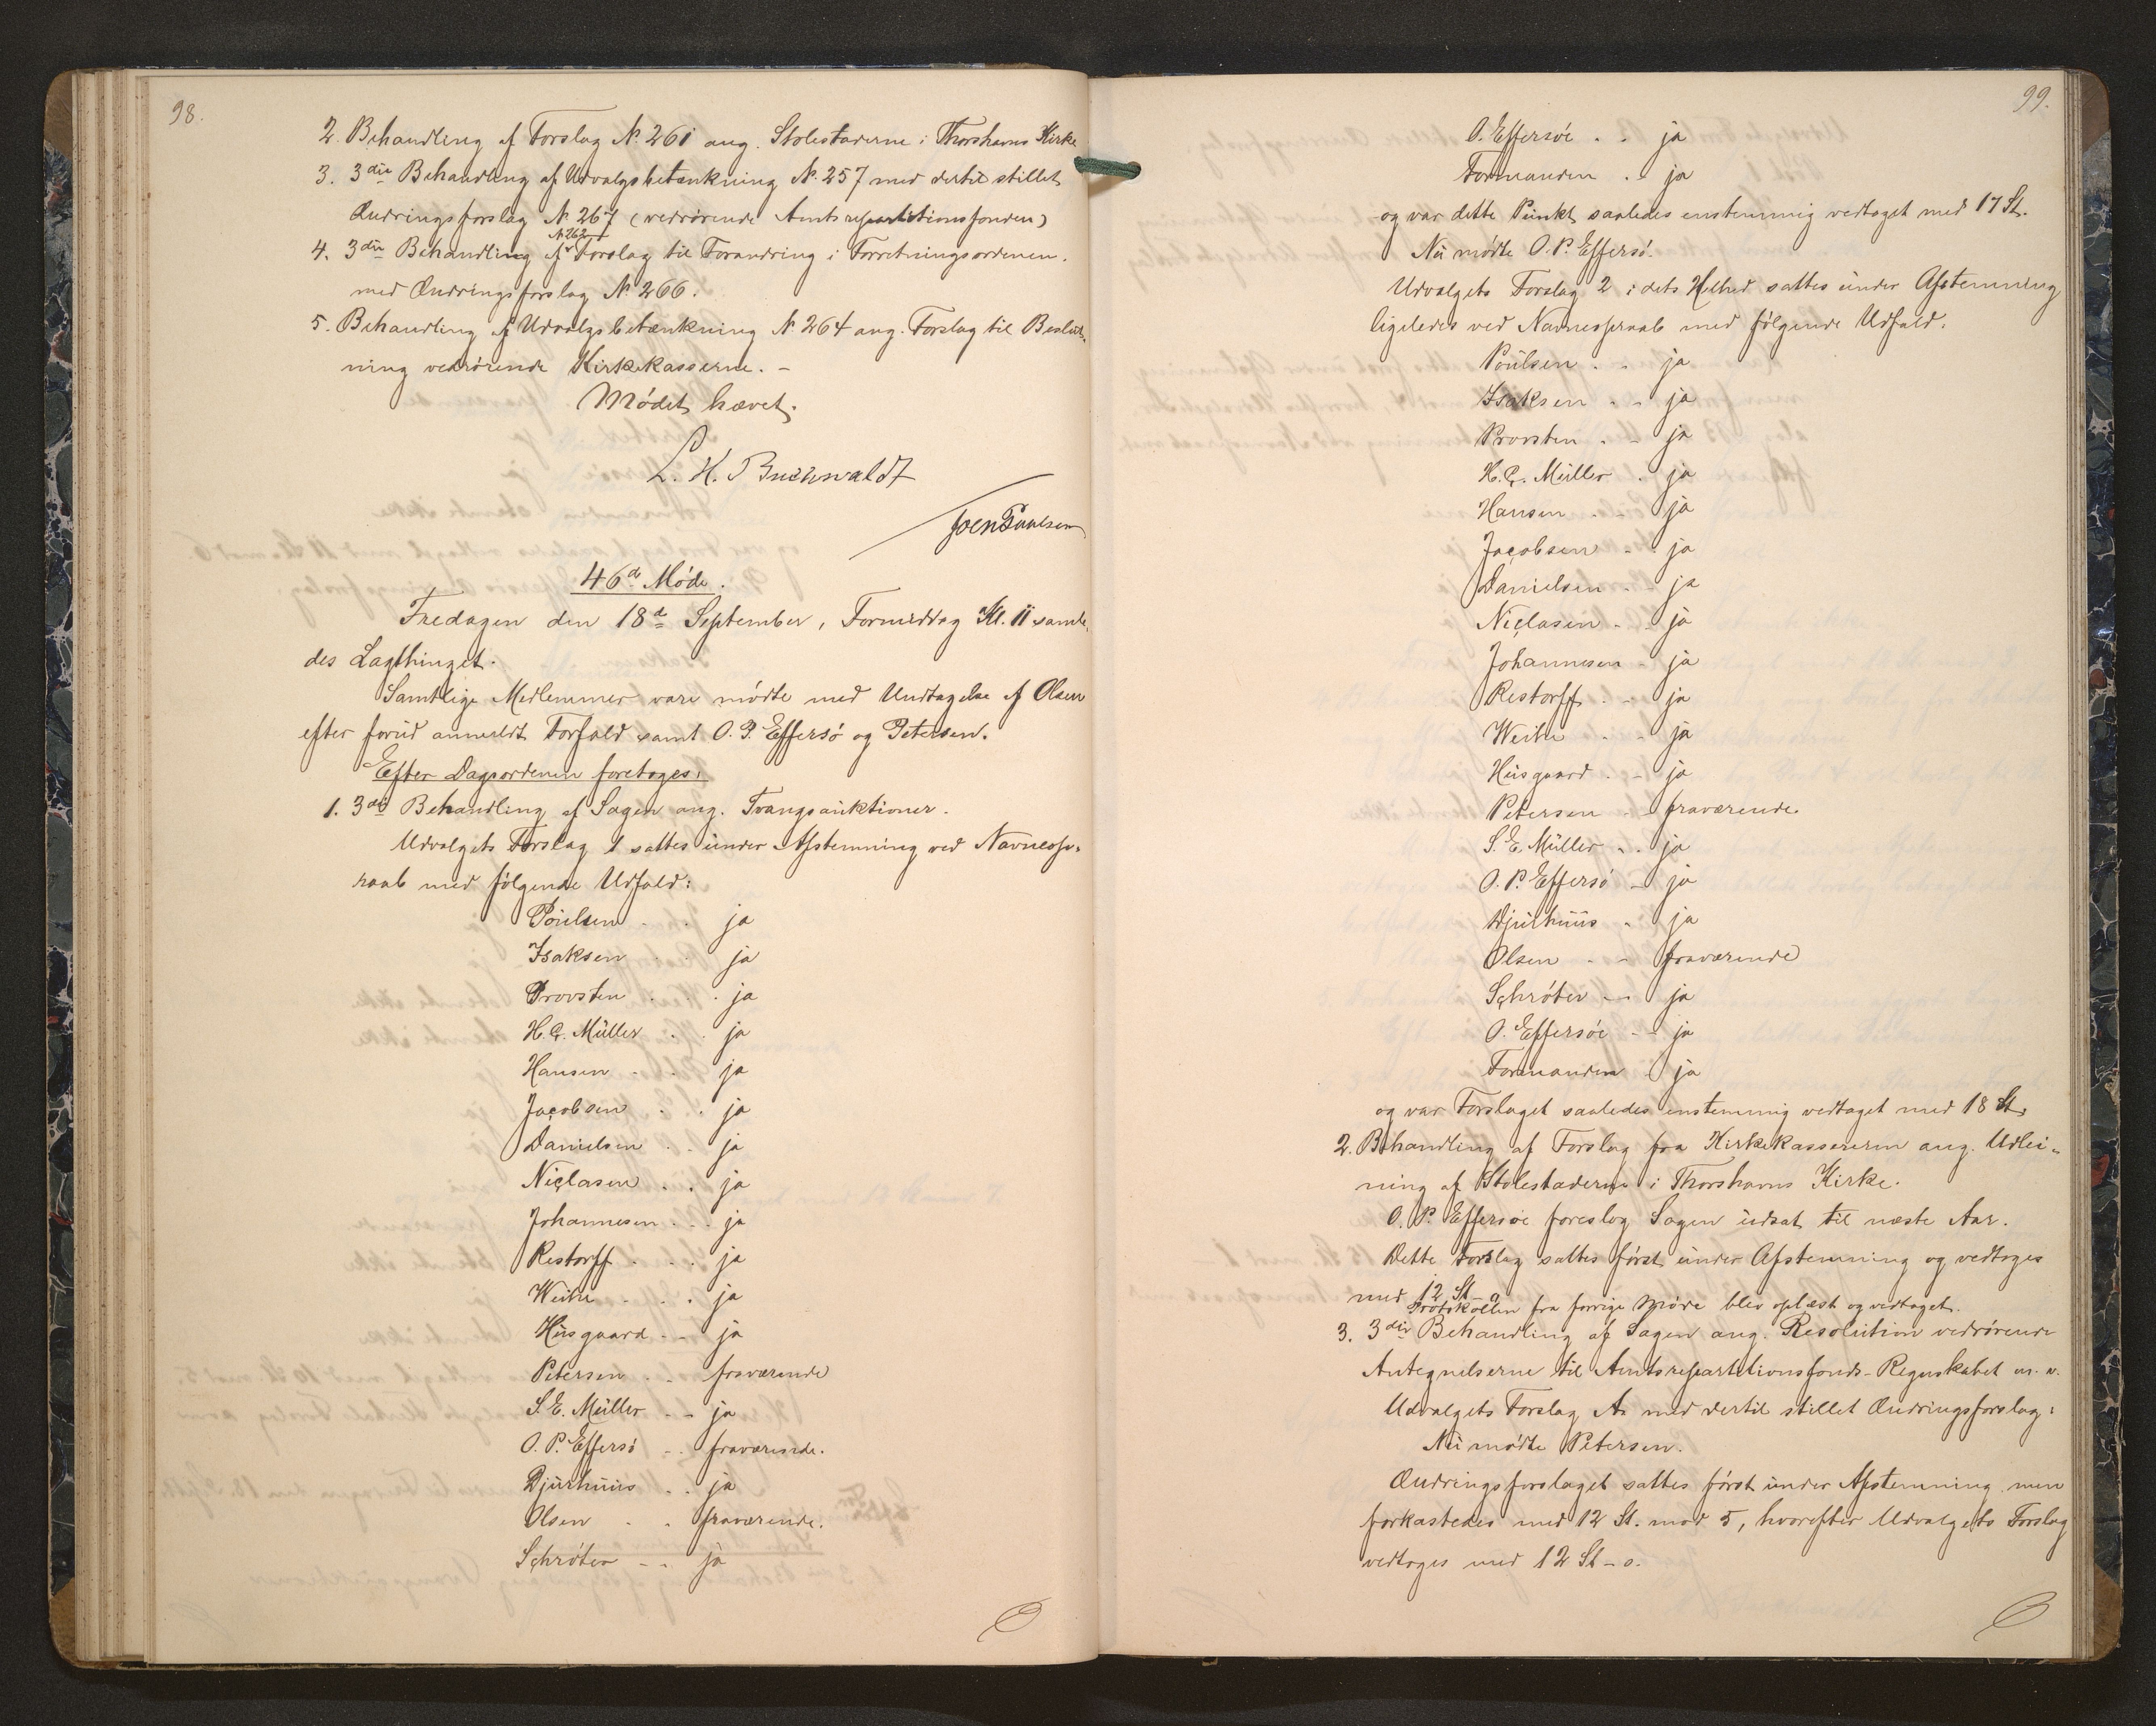 98.
2. Behandling af Forslag № 261 ang. Stolestaderne i Thorshavns Kirke
3. 3die Behandling af Udvalgsbetænkning № 257 med dertil stillet
Ændringsforslag № 267 (vedrørende Amtsrepartitionsfonden)
4. 3die Behandling af № 262 Forslag til Forandring i Forretningsordenen.
med Ændringsforslag № 266.
5. Behandling af Udvalgsbetænkning № 264 ang. Forslag til Beslut-
ning vedrørende Kirkekasserne. -
Mødet hævet.
L. H. Buchwaldt
Joen Poulsen
46de Møde.
Fredagen den 18de September, Formiddag Kl. 11 samle-
des Lagthinget.
Samtlige Medlemmer vare mødte med Undtagelse af Olsen
efter forud anmeldt Forfald samt O. P. Effersø og Petersen.
Efter Dagsordenen foretoges:
1. 3die Behandling af Sagen ang. Tvangsauktioner.
Udvalgets Forslag 1 sattes under Afstemning ved Navneop-
raab med følgende Udfald:
Poulsen . . ja
Isaksen . . ja
Provsten . . . ja
H. C. Müller . . ja
Hansen . . ja
Jacobsen . . ja
Danielsen . . ja
Niclasen . . ja
Johannesen . . . ja
Restorff . . . ja
Weihe . . . ja
Husgaard - - ja
Petersen . . fraværende
S. E. Müller - - ja
O. P. Effersø - . fraværende.
Djurhuus . . ja
Olsen . . fraværende.
Schrøter - - ja
99.
O. Effersøe . . ja
Formanden . . ja
og var dette Punkt saaledes enstemmig vedtaget med 17 St.
Nu mødte O. P. Effersø.
Udvalgets Forslag 2 i dets Helhed sattes under Afstemning
ligeledes ved Navneopraab med følgende Udfald.
Poulsen . . ja
Isaksen . - ja
Provsten . - ja
H. C. Müller . ja
Hansen . . ja
Jacobsen - . ja
Danielsen . . ja
Niclasen . . ja
Johannesen - ja
Restorff . - ja
Weihe . . ja
Husgaard . - ja
Petersen . fraværende.
S. E. Müller . . ja
O. P. Effersø - ja
Djurhuus . ja
Olsen . - fraværende
Schrøter - - ja
O. Effersøe - - ja
Formanden . ja
og var Forslaget saaledes enstemmig vedtaget med 18 St.
2. Behandling af Forslag fra Kirkekassereren ang. Udlei-
ning af Stolestaderne i Thorshavns Kirke.
O. P. Effersøe foreslog Sagen udsat til næste Aar.
Dette Forslag sattes først under Afstemning og vedtoges
med 12 St - o.
Protokollen fra forrige Møde blev oplæst og vedtaget.
3. 3die Behandling af Sagen ang. Resolution vedrørende
Antegnelserne til Amtsrepartitionsfonds-Regnskabet m. v.
Udvalgets Forslag A. med dertil stillet Ændringsforslag:
Nu mødte Petersen.
Ændringsforslaget sattes først under Afstemning men
forkastedes med 12 St. mod 5, hvorefter Udvalgets Forslag
vedtoges med 12 St - o.